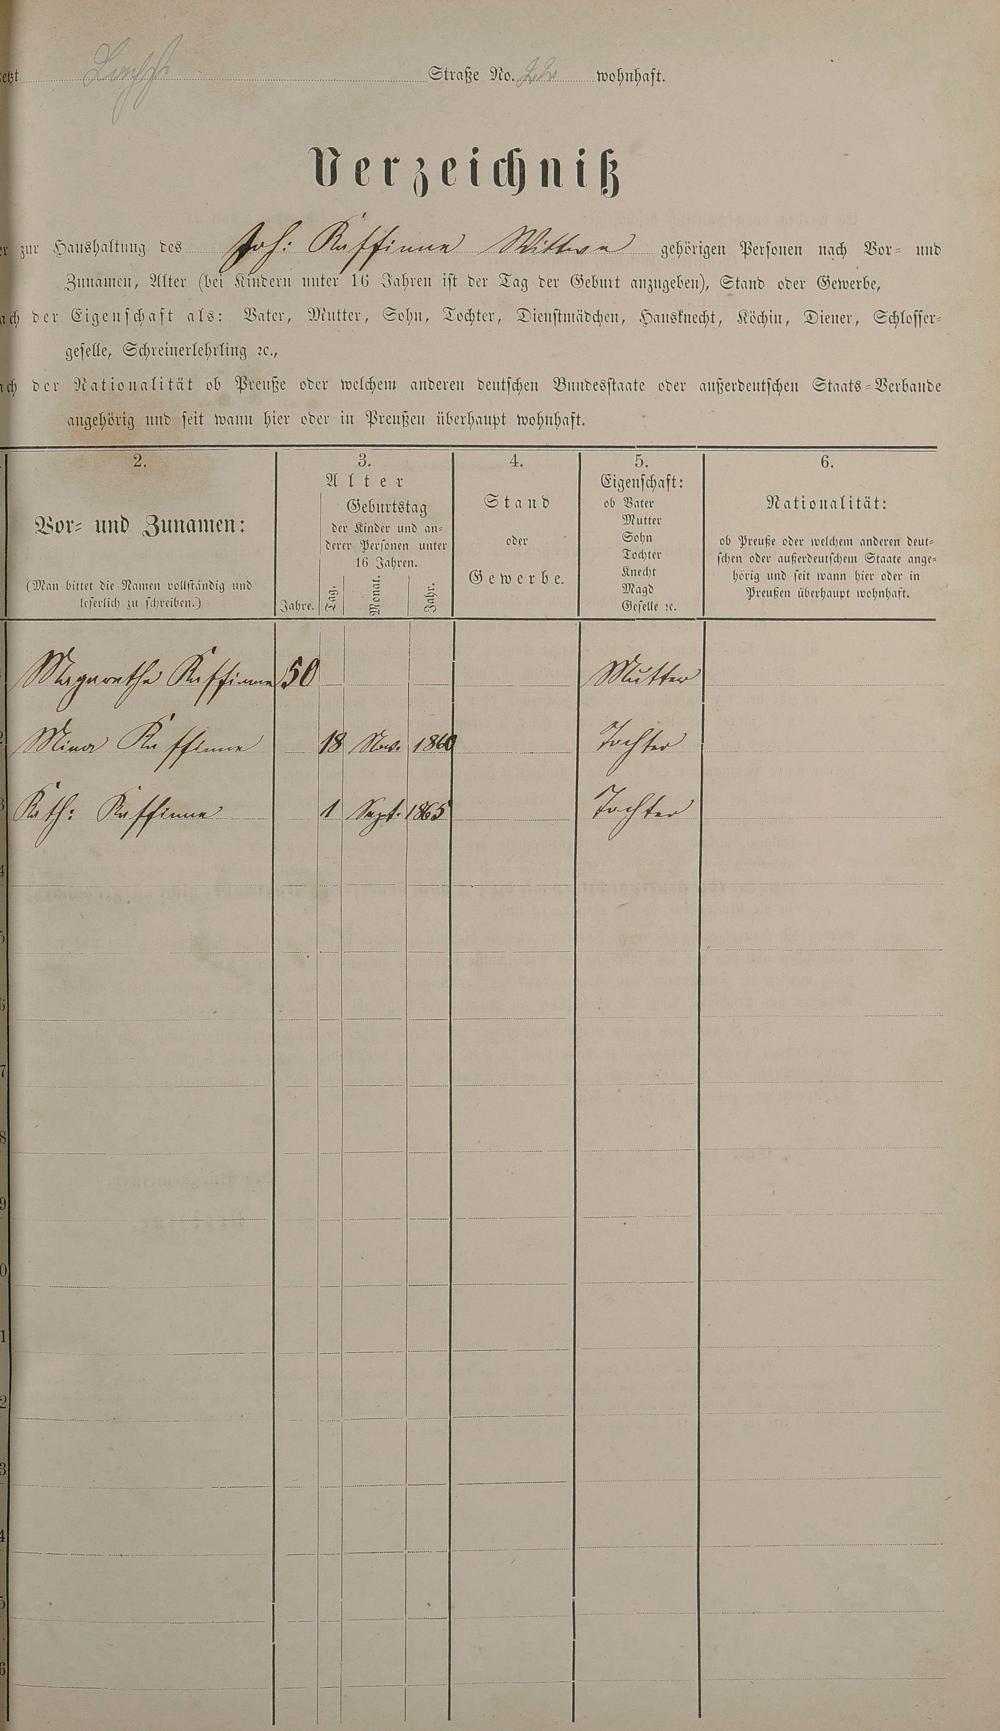 etzt Straße No. 22 wohnhaft.
Verzeichniß
er zur Haushaltung des Joh: Kaffinne Wittwe gehörigen Personen nach Vor- und
Zunamen, Alter (bei Kindern unter 16 Jahren ist der Tag der Geburt anzugeben), Stand oder Gewerbe,
ach der Eigenschaft als: Vater, Mutter, Sohn, Tochter, Dienstmädchen, Hausknecht, Köchin, Diener, Schlosser-
geselle, Schreinerlehrling ꝛc.,
ach der Nationalität ob Preuße oder welchem anderen deutschen Bundesstaate oder außerdeutschen Staats-Verbande
angehörig und seit wann hier oder in Preußen überhaupt wohnhaft.
2. 3. 4. 5. 6.
Vor- und Zunamen:
(Man bittet die Namen vollständig und
leserlich zu schreiben.)
Alter
Geburtstag
der Kinder und an-
derer Personen unter
16 Jahren.
Jahre. Tag. Monat. Jahr.
Stand
oder
Gewerbe.
Eigenschaft:
ob Vater
Mutter
Sohn
Tochter
Knecht
Magd
Geselle ꝛc.
Nationalität:
ob Preuße oder welchem anderen deut-
schen oder außerdeutschem Staate ange-
hörig und seit wann hier oder in
Preußen überhaupt wohnhaft.
Magarethe Kaffinne 50 Mutter
2 Mina Kaffinne 18 Nov. 1860 Tochter
3 Kath: Kaffinne 1 Sept. 1865 Tochter
4
5
6
7
8
9
0
1
2
3
4
5
6